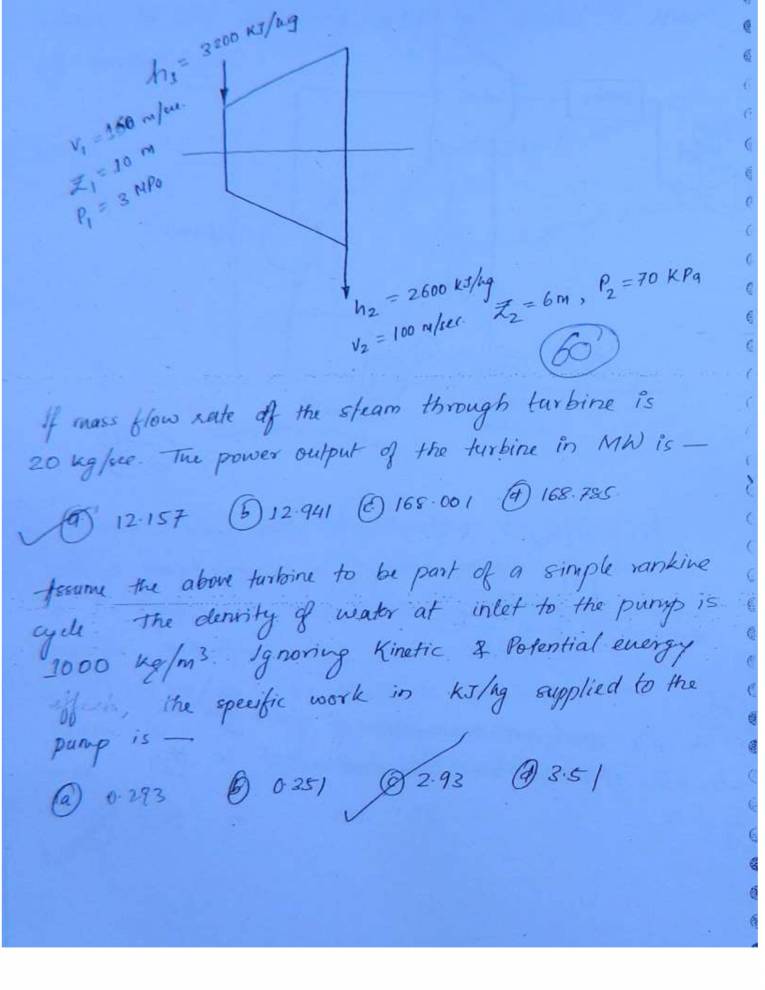 h₁ = 3200 KJ/kg
V₁ = 160 m/sec.
Z₁ = 10 m
P₁ = 3 MPa
h₂ = 2600 KJ/kg
V₂ = 100 m/sec.
Z₂ = 6m, P₂ = 70 KPa
60
If mass flow rate of the steam through turbine is
20 kg/sec. The power output of the turbine in MW is —
(a) 12.157 (b) 12.941 (c) 168.001 (d) 168.785
Assume the above turbine to be part of a simple rankine
cycle. The density of water at inlet to the pump is
1000 kg/m³. Ignoring Kinetic & Potential energy
effects, the specific work in KJ/kg supplied to the
pump is —
(a) 0.293 (b) 0.351 (c) 2.93 (d) 3.51